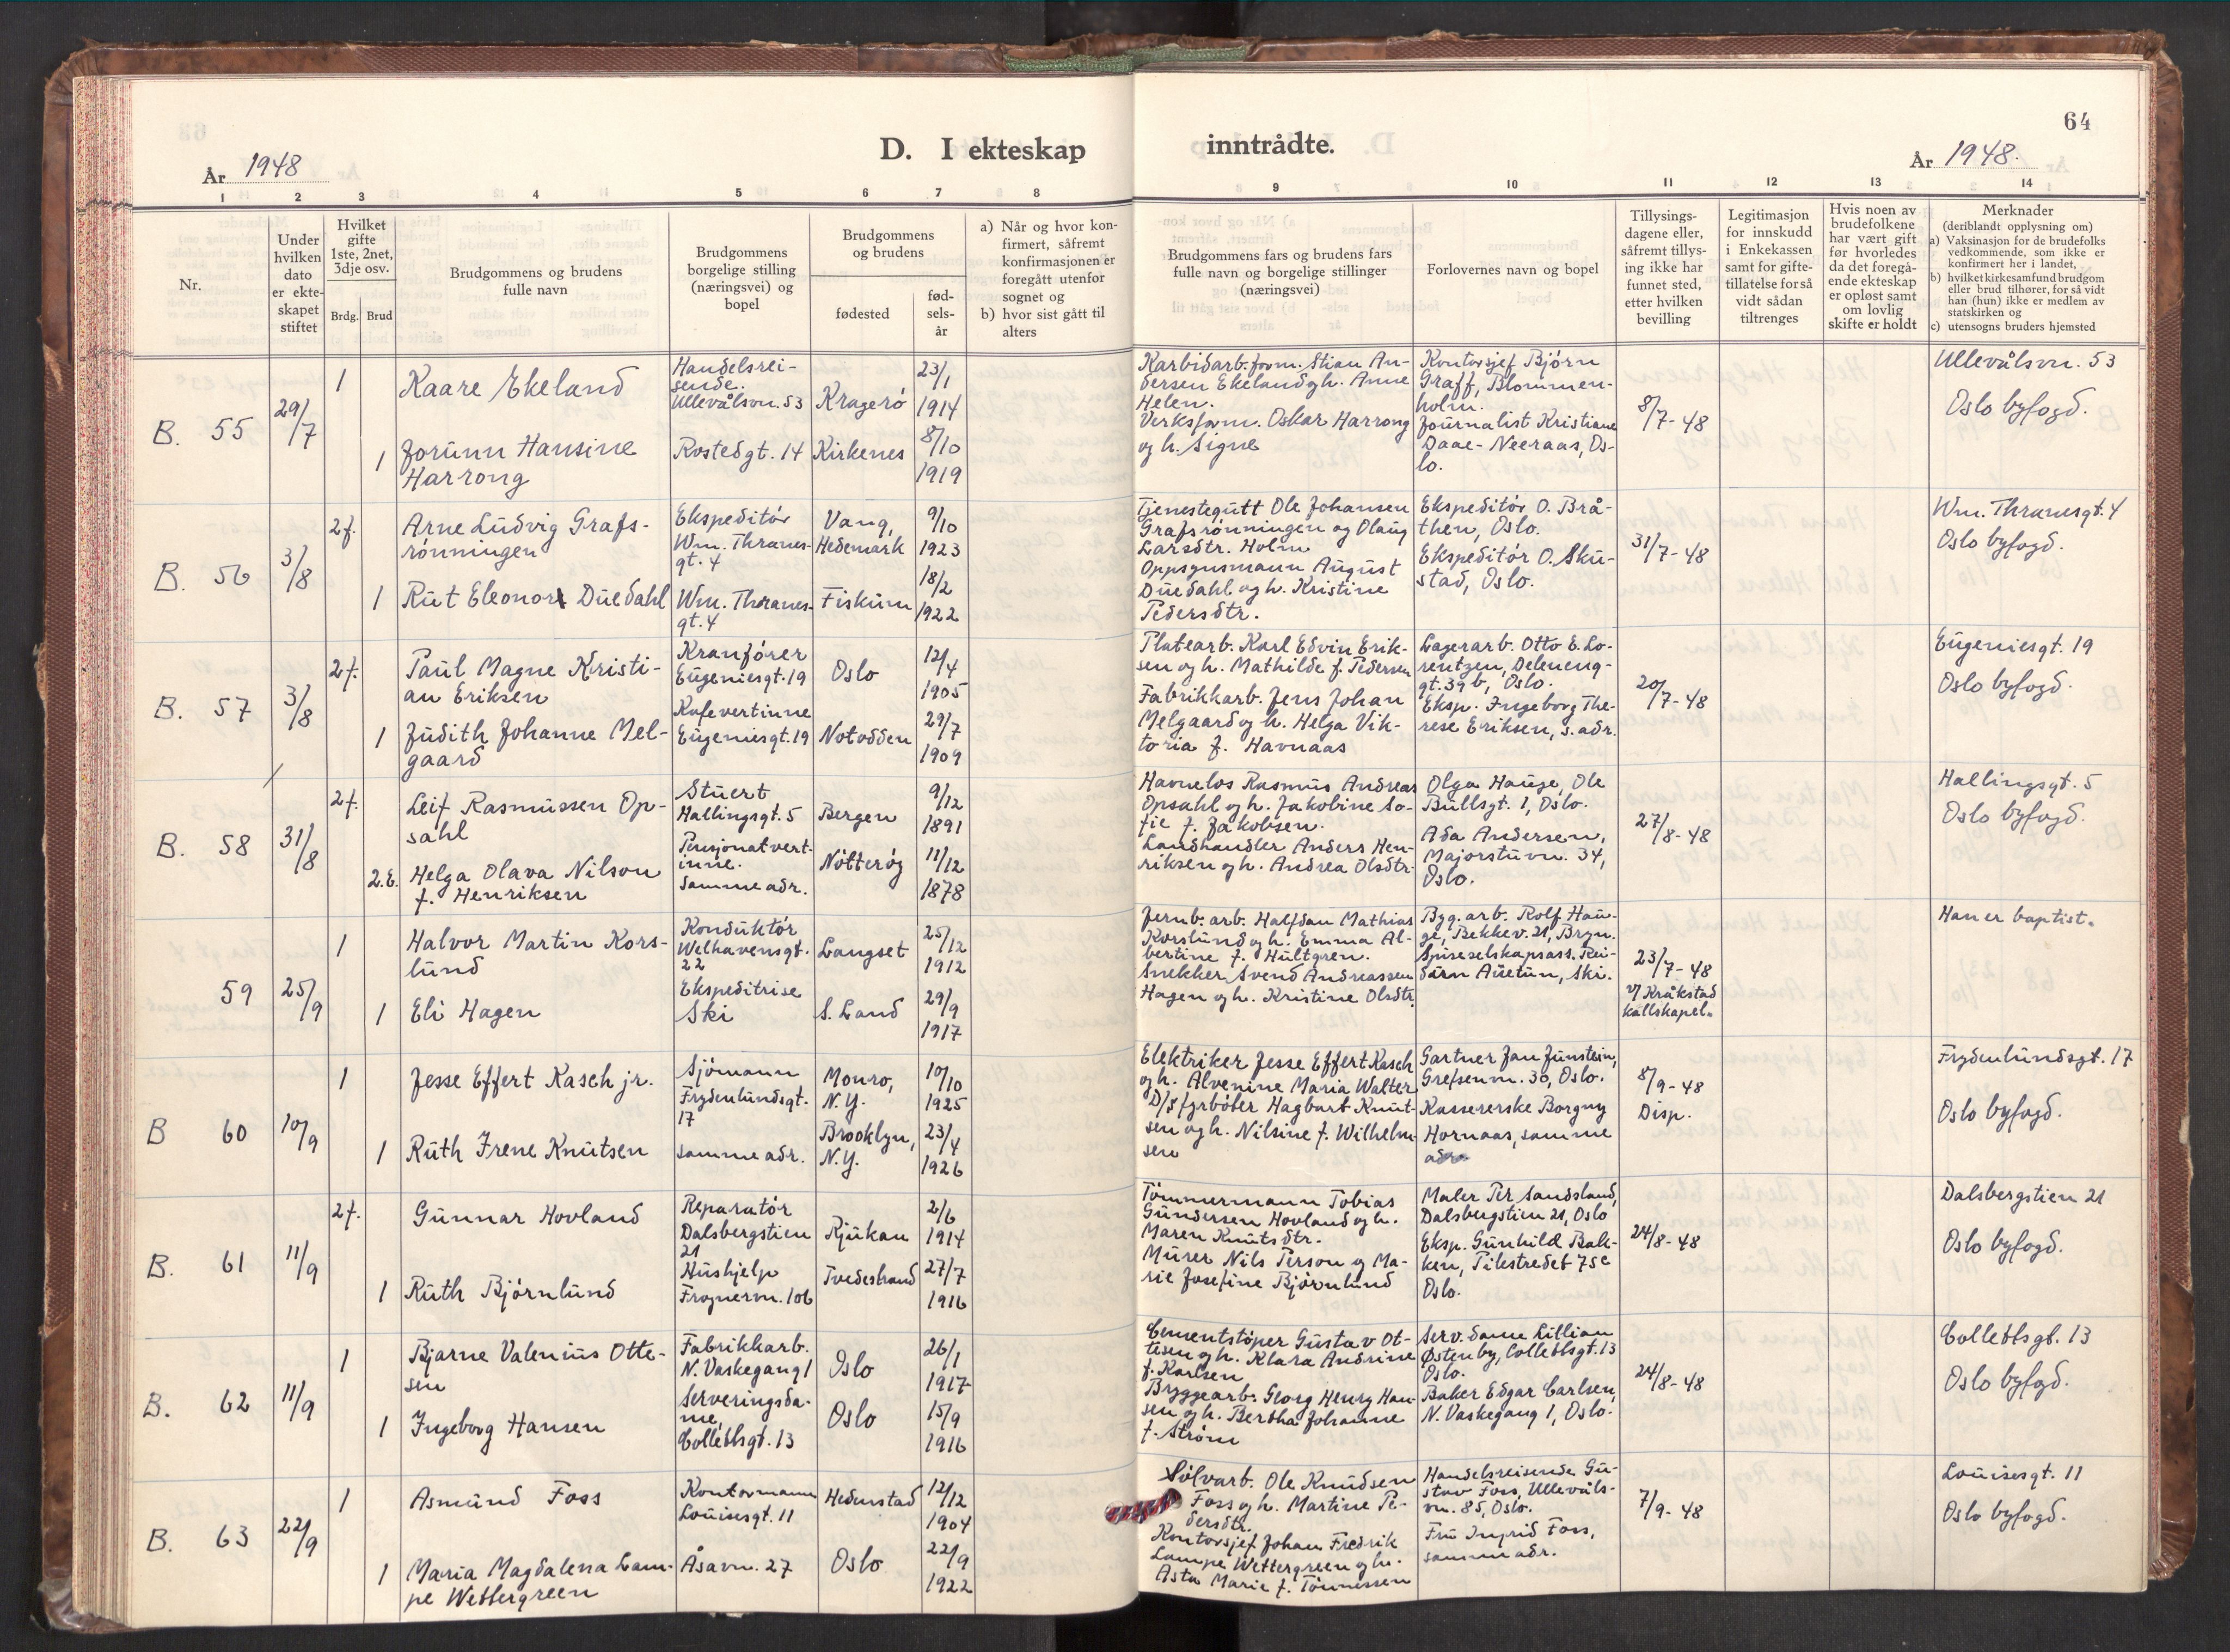 64
D. I ekteskap inntrådte.
År 1948
År 1948.
1 2 3 4 5 6 7 8 9 10 11 12 13 14
Nr.
Under hvilken dato er ekteskapet stiftet
Hvilket gifte 1ste, 2net, 3dje osv.
Brdg. Brud
Brudgommens og brudens fulle navn
Brudgommens borgelige stilling (næringsvei) og bopel
Brudgommens og brudens
fødested
fød-
sels-
år
a) Når og hvor kon-
firmert, såfremt
konfirmasjonen er
foregått utenfor
sognet og
b) hvor sist gått til
alters
Brudgommens fars og brudens fars
fulle navn og borgelige stillinger
(næringsvei)
Forlovernes navn og bopel
Tillysings-
dagene eller,
såfremt tillys-
ing ikke har
funnet sted,
etter hvilken
bevilling
Legitimasjon
for innskudd
i Enkekassen
samt for gifte-
tillatelse for så
vidt sådan
tiltrenges
Hvis noen av
brudefolkene
har vært gift
før hvorledes
da det foregå-
ende ekteskap
er opløst samt
om lovlig
skifte er holdt
Merknader
(deriblandt opplysning om)
a) Vaksinasjon for de brudefolks
vedkommende, som ikke er
konfirmert her i landet,
b) hvilket kirkesamfund brudgom
eller brud tilhører, for så vidt
han (hun) ikke er medlem av
statskirken og
c) utensogns bruders hjemsted
B. 55
29/7
1
Kaare Ekeland
Handelsrei-
sende.
Ullevålsvn. 53
Kragerö
23/1
1914
1
Jorunn Hansine
Harrong
Rostedgt. 14
Kirkenes
8/10
1919
Karbidarb.form. Stian An-
dersen Ekeland og h. Anne
Helen.
Verksform. Oskar Harrong
og h. Signe
Kontorsjef Bjørn
Graff, Blommen-
holm.
Journalist Kristiane
Daae-Neeraas, Os-
lo.
8/7-48
Ullevålsvn. 53
Oslo byfogd.
B. 56
3/8
2f.
Arne Ludvig Grafs-
rønningen
Ekspeditør
Wm. Thranes-
gt. 4
Vang,
Hedemark
9/10
1923
1
Rut Eleonora Duedahl
Wm. Thranes-
gt. 4
Fiskum
18/2
1922
Tjenestegutt Ole Johansen
Grafsrønningen og Olaug
Larsdtr. Holm
Oppsynsmann August
Duedahl og h. Kristine
Pedersdtr.
Ekspeditör O. Brå-
then, Oslo.
Ekspeditör O. Sku-
stad, Oslo.
31/7-48
Wm. Thranesgt. 4
Oslo byfogd.
B. 57
3/8
2f.
Paul Magne Kristi-
an Eriksen
Kranförer
Eugeniesgt. 19
Oslo
12/4
1905
1
Judith Johanne Mel-
gaard
Kafevertinne
Eugeniesgt. 19
Notodden
29/7
1909
Platearb. Karl Edvin Erik-
sen og h. Mathilde f. Pedersen
Fabrikkarb. Jens Johan
Melgaard og h. Helga Vik-
toria f. Havnaas
Lagerarb. Otto E. Lo-
rentzen, Deleneng-
gt. 39 b, Oslo.
Eksp. Ingeborg The-
rese Eriksen, s. adr.
20/7-48
Eugeniesgt. 19
Oslo byfogd.
B. 58
31/8
2f.
Leif Rasmussen Op-
sahl
Stuert
Hallingsgt. 5
Bergen
9/12
1891
2.E.
Helga Olava Nilson
f. Henriksen
Pensjonatvert-
inne.
Samme adr.
Nötteröy
11/12
1878
Havnelos Rasmus Andreas
Opsahl og h. Jakobine So-
fie f. Jakobsen.
Landhandler Anders Hen-
riksen og h. Andrea Olsdtr.
Olga Hauge, Ole
Bullsgt. 1, Oslo.
Ada Andersen,
Majorstuvn. 34,
Oslo.
27/8-48
Hallingsgt. 5
Oslo byfogd.
59
25/9
1
Halvor Martin Kors-
lund
Konduktör
Welhavensgt.
22
Langset
25/12
1912
1
Eli Hagen
Ekspeditrise
Ski
S. Land
29/9
1917
Jernb. arb. Halfdan Mathias
Korslund og h. Emma Al-
bertine f. Hultgren.
Snekker Svend Andreassen
Hagen og h. Kristine Olsdtr.
Byg. arb. Rolf Hau-
ge, Bekkev. 21, Bryn.
Spiseselskapsass. Rei-
darn Auetun, Ski.
23/7-48
v/ Kråkstad
kallskapel.
Han er baptist.
B 60
10/9
1
Jesse Effert Kasch jr.
Sjömann
Frydenlundsgt.
17
Monro,
N.Y.
10/10
1925
1
Ruth Irene Knutsen
samme adr.
Brooklyn,
N.Y.
23/4
1926
Elektriker Jesse Effert Kasch
og h. Alvenine Maria Walter
D/s fyrböter Hagbart Knut-
sen og h. Nilsine f. Wilhelm-
sen
Gartner Jan Junstein,
Grefsenvn. 30, Oslo.
Kassererske Borgny
Hornaas, samme
adr.
8/9-48
Disp.
Frydenlundsgt. 17
Oslo byfogd.
B. 61
11/9
2f.
Gunnar Hovland
Reparatör
Dalsbergstien
21
Rjukan
2/6
1914
1
Ruth Bjørnlund
Hushjelp
Frognervn. 10b
Tvedestrand
27/7
1916
Tömmermann Tobias
Gundersen Hovland og h.
Maren Knutsdtr.
Murer Nils Person og Ma-
rie Josefine Bjørnlund
Maler Per Sandsland,
Dalsbergstien 21, Oslo
Eksp. Gunhild Bak-
ken, Pilestredet 75c
Oslo.
24/8-48
Dalsbergstien 21
Oslo byfogd.
B. 62
11/9
1
Bjarne Valenius Otte-
sen
Fabrikkarb.
N. Vaskegang 1
Oslo
26/1
1917
1
Ingeborg Hansen
Serveringsda-
me,
Collettsgt. 13
Oslo
15/9
1916
Cementstöper Gustav Ot-
tesen og h. Klara Andrine
f. Karlsen
Bryggearb. Georg Henry Han-
sen og h. Bertha Johanne
f. Strøm
Serv. dame Lillian
Østenby, Collettsgt. 13
Oslo.
Baker Edgar Carlsen,
N. Vaskegang 1, Oslo.
24/8-48
Collettsgt. 13
Oslo byfogd.
B. 63
22/9
1
Asmund Foss
Kontormann
Louisesgt. 11
Hedenstad
12/12
1904
1
Maria Magdalena Lam-
pe Wettergreen
Åsavn. 27
Oslo
22/9
1922
Sölvarb. Ole Knudsen
Foss og h. Martine Pe-
dersdtr.
Kontorsjef Johan Fredrik
Lampe Wettergreen og h.
Asta Marie f. Tönnessen
Handelsreisende Gu-
stav Foss, Ullevåls-
vn. 85, Oslo.
Fru Ingrid Foss,
samme adr.
7/9-48
Louisesgt. 11
Oslo byfogd.